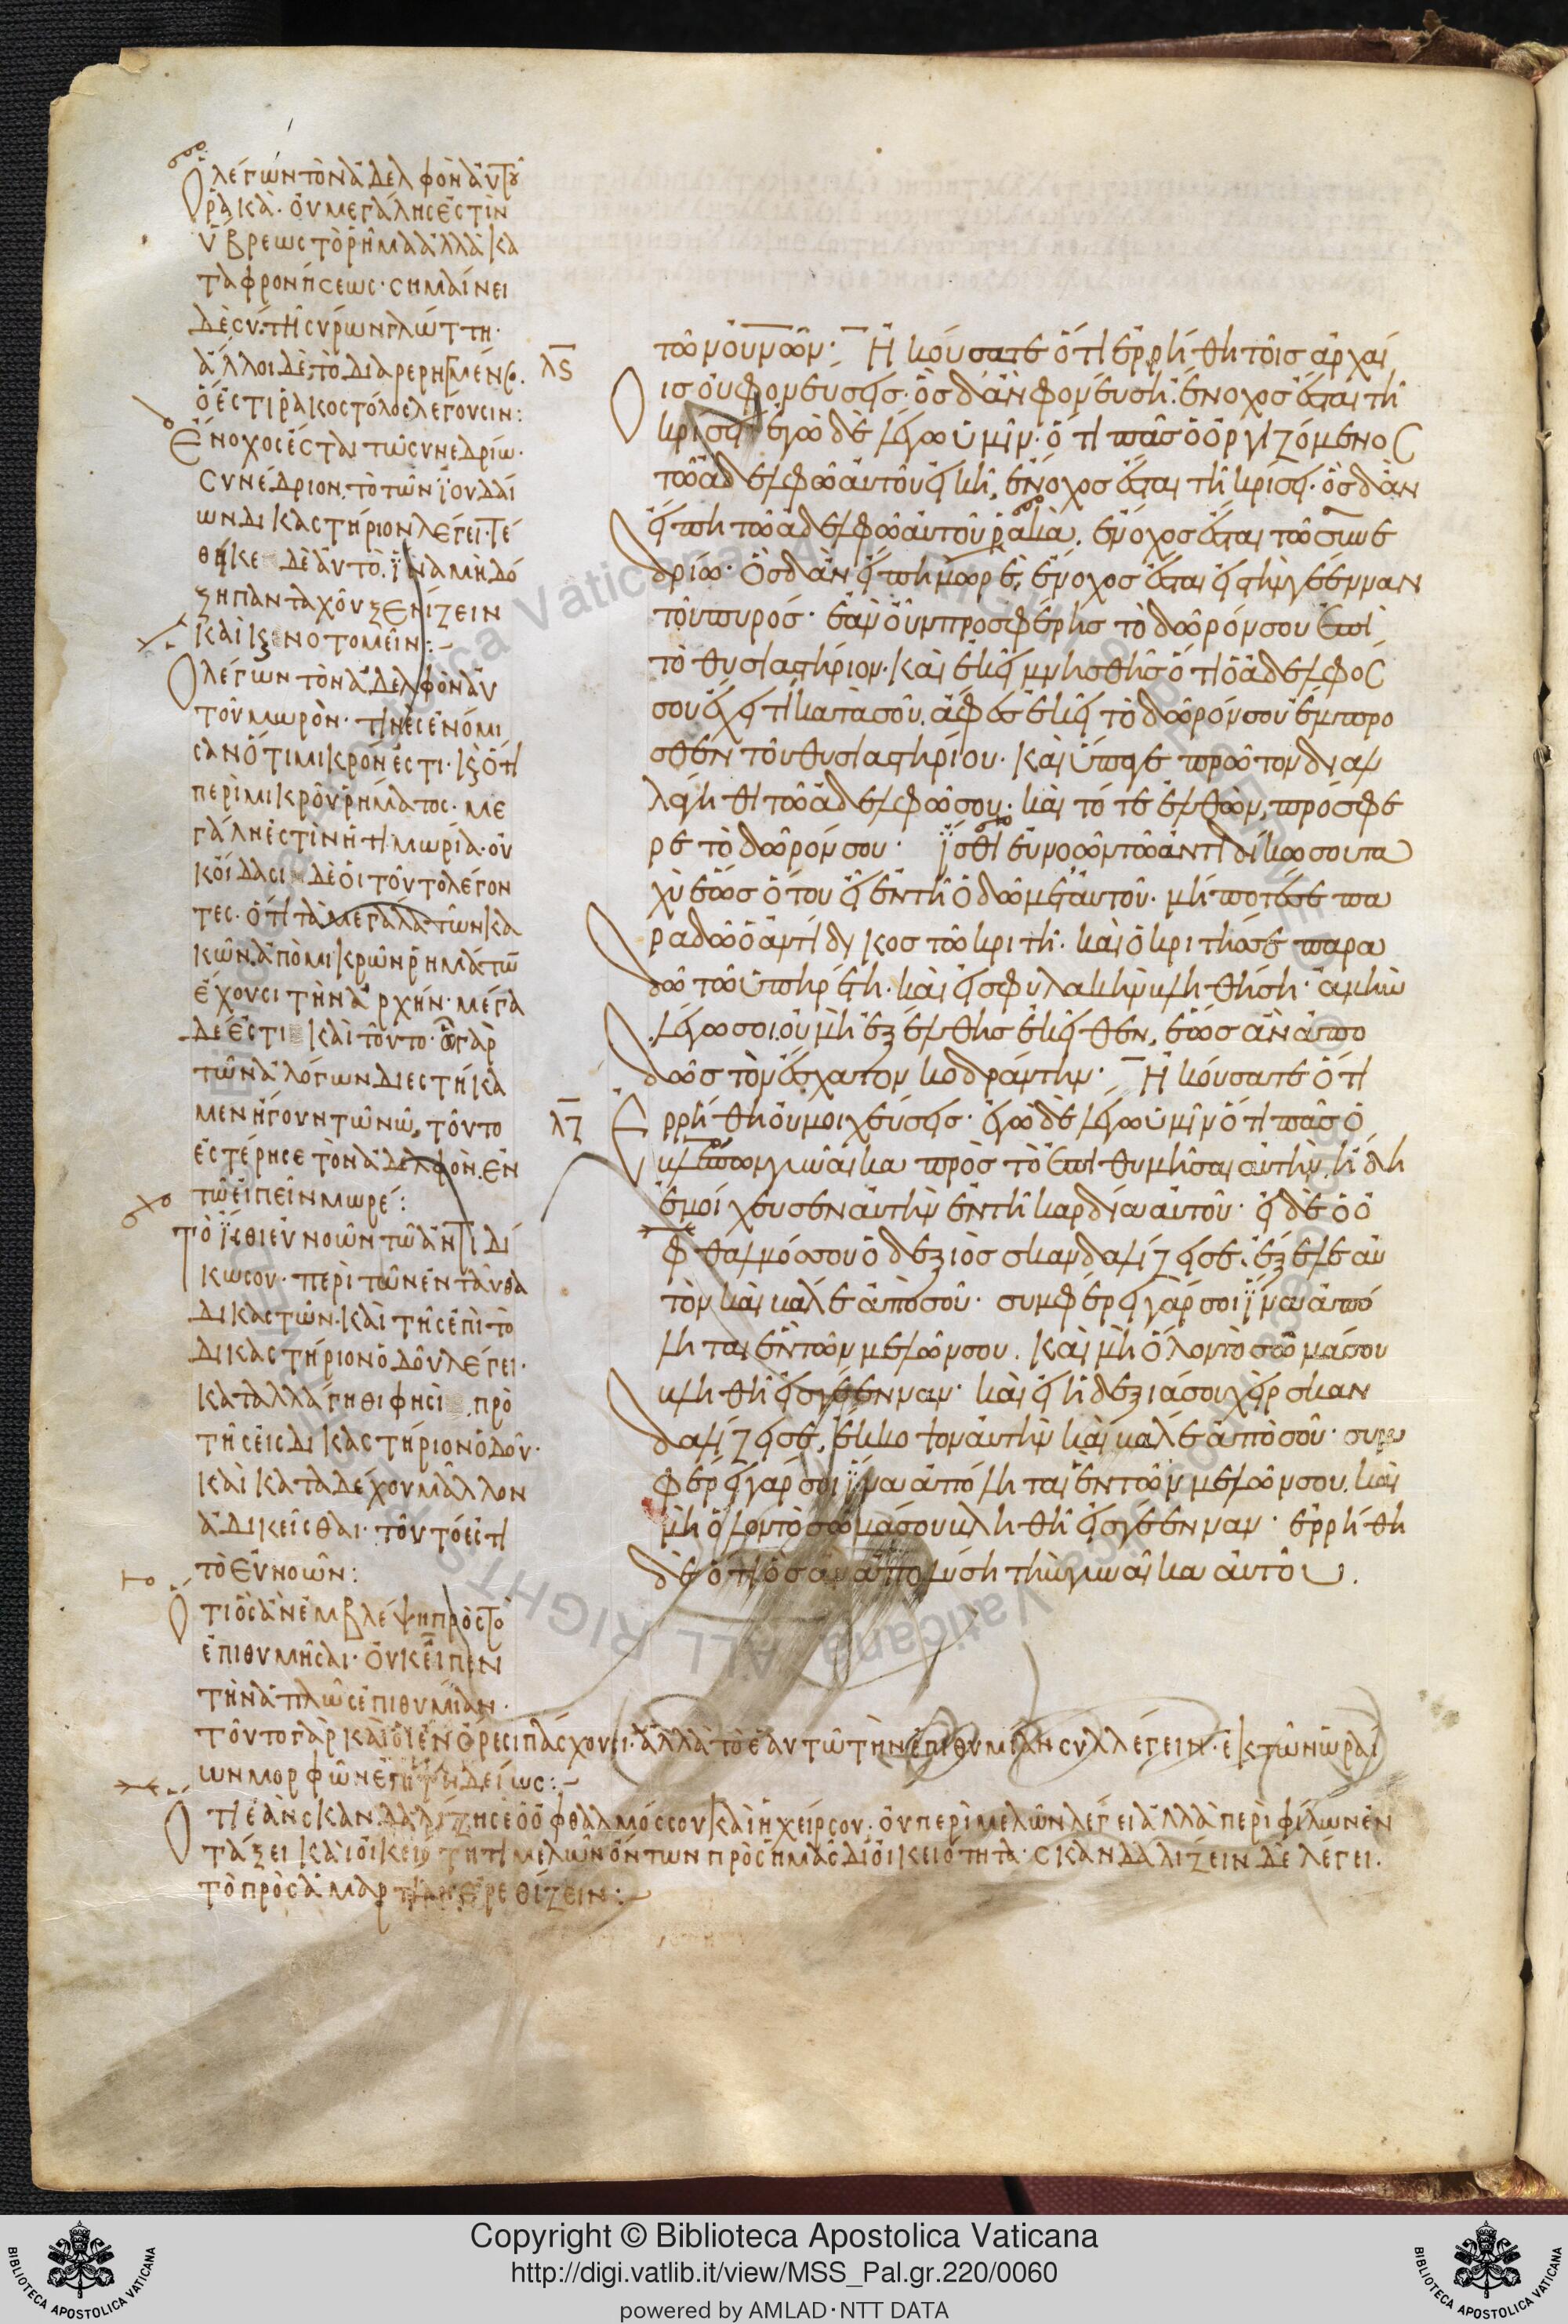 Ὁ λέγων τὸν ἀδελφὸν αὐτοῦ
ρακά· οὐ μεγάλης ἐστὶν
ὕβρεως τὸ ῥῆμα ἀλλὰ κα
ταφρονήσεως· σημαίνει
δὲ σύ· τῆ σύρων γλώττη·
ἄλλοι δὲ, τὸ διαρερηγμένος.
ὅ ἐστι ῥάκος τόλος λέγουσιν:
Ἔνοχος ἔσται τῶ συνεδρίω·
Συνέδριον, τὸ τῶν ϊουδαί
ων δικαστήριον λέγει· τέ
θηκε δὲ αὐτὸ, ϊνα μὴ δό
ξη πανταχοῦ ξενίζειν
καὶ ξενοτομεῖν:
Ὁ λέγων τὸν ἀδελφὸν αὐ
τοῦ μωρὸν· τινὲς ἐνόμι
σαν ὅτι μικρόν ἐστι· καὶ ὅτι
περὶ μικροῦ ῥήματος· με
γάλη ἐστὶν ἡ τιμωρία· οὐ
κ οἴδασι δὲ οἱ τοῦτο λέγον
τες· ὅτι τὰ μεγάλα τῶν κα
κῶν ἀπὸ μικρῶν ῥημάτων
ἔχουσι τὴν ἀρχήν· μέγα
δέ ἐστι καὶ τοῦτο· ᾧ γὰρ
τῶν ἀλόγων διεστήκα
μεν ἤγουν τῷ νῷ, τοῦτο
ἐστέρησε τὸν ἀδελφὸν, ἐν
τῶ εἰπεῖν μωρέ:
Τὸ ϊσθι εὐνοῶν τῶ ἀντιδί
κω σου· περὶ τῶν ἐνταῦθα
δικαστῶν· καὶ τῆς ἐπὶ τὸ
δικαστήριον ὁδοῦ λέγει·
καταλλάγηθι φησὶ πρὸ
τῆς εἰς δικαστήριον ὁδοῦ·
καὶ καταδέχου μᾶλλον
ἀδικεῖσθαι· τοῦτό ἐστι
τὸ εὐνοῶν:
Ὅτι ὃς ἂν ἐμβλέψη πρὸς τὸ
ἐπιθυμῆσαι· οὐκ εἶπεν
τὴν ἁπλῶς ἐπιθυμίαν·
τοῦτο γὰρ καὶ οἱ ἐν ὄρεσι πάσχουσι· ἀλλὰ τὸ ἑαυτῶ τὴν ἐπιθυμίαν συλλέγειν· ἐκ τῶν ὡραί
ων μορφῶν ἐπιτηδείως:
Ὅτι ἐὰν σκανδαλίζη σε ὁ ὀφθαλμός σου καὶ ἡ χείρ σου· οὐ περὶ μελῶν λέγει ἀλλὰ περὶ φίλων ἐν
τάξει καὶ οἰκειότητι μελῶν ὄντων πρὸς ἡμᾶς δι οἰκειότητα· σκανδαλίζειν δὲ λέγει·
τὸ πρὸς ἁμαρτίαν ἐρεθίζειν:
τῶν οὐνῶν· Ἠκούσατε ὅτι ἐρρήθη τοῖς ἀρχαί
λς οις οὐ φονεύσεις· ὃς δ' ἂν φονεύση, ἔνοχος ἔσται τῆ
κρίσει· ἐγὼ δὲ λέγω ὑμῖν· ὅτι πᾶς ὁ ὀργιζόμενος
τῶ ἀδελφῶ αὐτοῦ εἰκῆ, ἔνοχος ἔσται τῆ κρίσει· ὃς δ' ἂν
εἴπη τῶ ἀδελφῶ αὐτοῦ ῥακὰ, ἔνοχος ἔσται τῶ συνε
δρίω· Ὃς δ' ἂν εἴπη μωρὲ, ἔνοχος ἔσται εἰς τὴν γέενναν
τοῦ πυρός· ἐὰν οὖν προσφέρης τὸ δῶρόν σου ἐπὶ
τὸ θυσιαστήριον· καὶ ἐκεῖ μνησθῆς ὅτι ὁ ἀδελφός
σου ἔχει τι κατὰ σοῦ, ἄφες ἐκεῖ τὸ δῶρόν σου ἔμπρο
σθεν τοῦ θυσιαστηρίου· καὶ ὕπαγε πρῶτον διαλ
λάγηθι τῶ ἀδελφῶ σου· καὶ τότε ἐλθὼν, πρόσφε
ρε τὸ δῶρόν σου· ϊσθι εὐνοῶν τῶ ἀντιδίκω σου τα
χὺ ἕως ὅτου εἶ ἐν τῆ ὁδῶ μετ' αὐτοῦ· μήποτέ σε πα
ραδῶ ὁ ἀντίδικος τῶ κριτῆ· καὶ ὁ κριτής σε παρα
δῶ τῶ ὑπηρέτη· καὶ εἰς φυλακὴν κληθήση· ἀμὴν
λέγω σοι, οὐ μὴ ἐξέλθης ἐκεῖθεν, ἕως ἂν ἀπο
δῶς τὸν ἔσχατον κοδράντην· Ἠκούσατε ὅτι
λζ Ἐρρήθη οὐ μοιχεύσεις· ἐγὼ δὲ λέγω ὑμῖν ὅτι πᾶς ὁ
βλέπων γυναῖκα πρὸς τὸ ἐπιθυμῆσαι αὐτὴν, ἤδη
ἐμοίχευσεν αὐτὴν ἐν τῆ καρδία αὐτοῦ· εἰ δὲ ὁ ὀ
φθαλμός σου ὁ δεξιὸς σκανδαλίζει σε, ἔξελε αὐ
τὸν καὶ βάλε ἀπὸ σοῦ· συμφέρει γάρ σοι ϊνα ἀπό
ληται ἓν τῶν μελῶν σου, καὶ μὴ ὅλον τὸ σῶμά σου
κληθῆ εἰς γέενναν· καὶ εἰ ἡ δεξιά σοι χεὶρ σκαν
δαλίζει σε, ἔκκοψον αὐτὴν καὶ βάλε ἀπὸ σοῦ· συμ
φέρει γάρ σοι ϊνα ἀπόληται ἓν τῶν μελῶν σου, καὶ
μὴ ὅλον τὸ σῶμά σου κληθῆ εἰς γέενναν· ἐρρήθη
δὲ ὅτι ὃς ἂν ἀπολύση τὴν γυναῖκα αὐτοῦ.
Copyright © Biblioteca Apostolica Vaticana
http://digi.vatlib.it/view/MSS_Pal.gr.220/0060
powered by AMLAD·NTT DATA
BIBLIOTECA APOSTOLICA VATICANA
BIBLIOTECA APOSTOLICA VATICANA